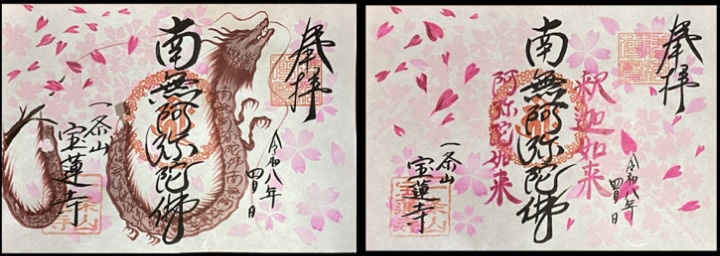 奉拝
南無阿弥陀佛
令和八年
四月
日
一茶山
宝蓮寺
奉拝
釈迦如来
南無阿弥陀佛
阿弥陀如来
令和八年
四月
日
一茶山
宝蓮寺